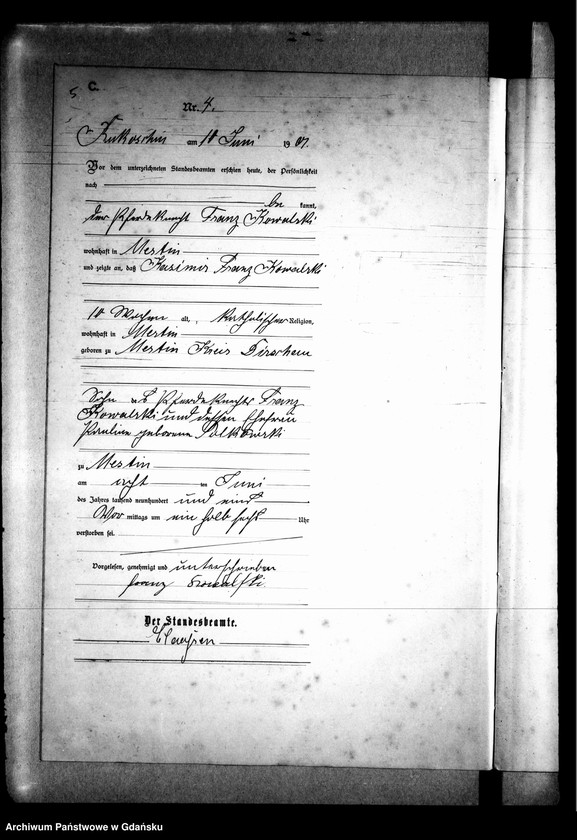 C.
Nr. 4.
Kukoschin am 10 Juni 1901.
Vor dem unterzeichneten Standesbeamten erschien heute, der Persönlichkeit
nach
be kannt,
der Pferdeknecht Franz Kowalski
wohnhaft in Mestin
und zeigte an, daß Kasimir Franz Kowalski
10 Wochen alt, katholischer Religion,
wohnhaft in Mestin
geboren zu Mestin Kreis Dirschau
Sohn des Pferdeknechts Franz
Kowalski und dessen Ehefrau
Pauline geborene
zu Mestin
am acht ten Juni
des Jahres tausend neunhundert und eins
Vor mittags um ein halb sechs Uhr
verstorben sei.
Vorgelesen, genehmigt und unterschrieben
Franz Kowalski
Der Standesbeamte.
Claassen
Archiwum Państwowe w Gdańsku